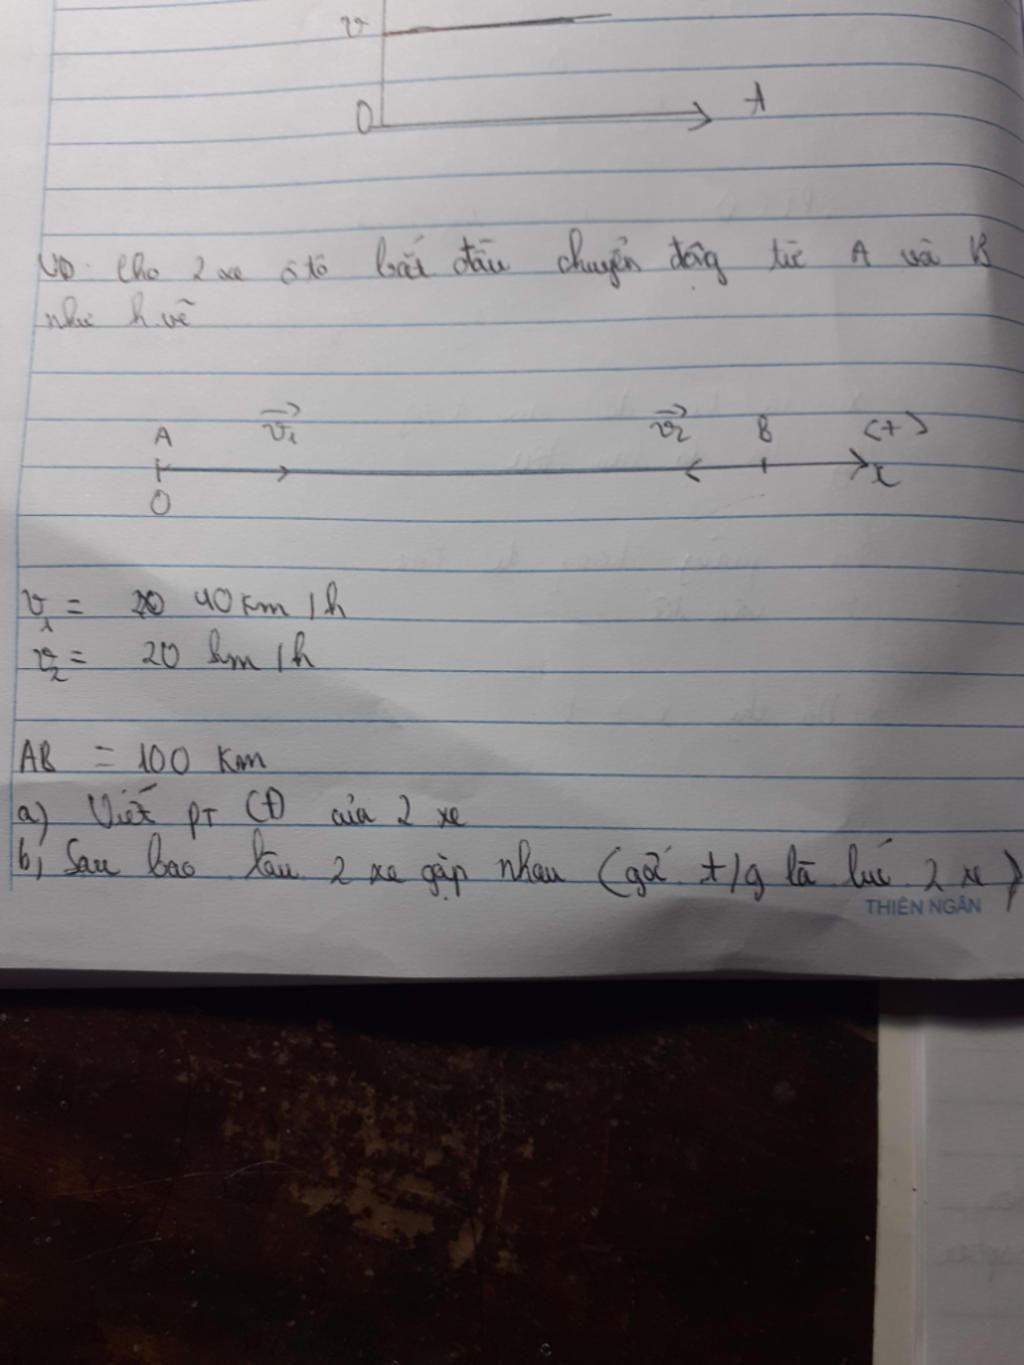 v
O
t
VD: Cho 2 xe ô tô bắt đầu chuyển động từ A và B
như h.vẽ
A v₁ v₂ B (+)
O x
v₁ = 40 km/h
v₂ = 20 km/h
AB = 100 km
a) Viết PT CĐ của 2 xe
b, Sau bao lâu 2 xe gặp nhau (gốc t/g là lúc 2 xe)
THIÊN NGÂN